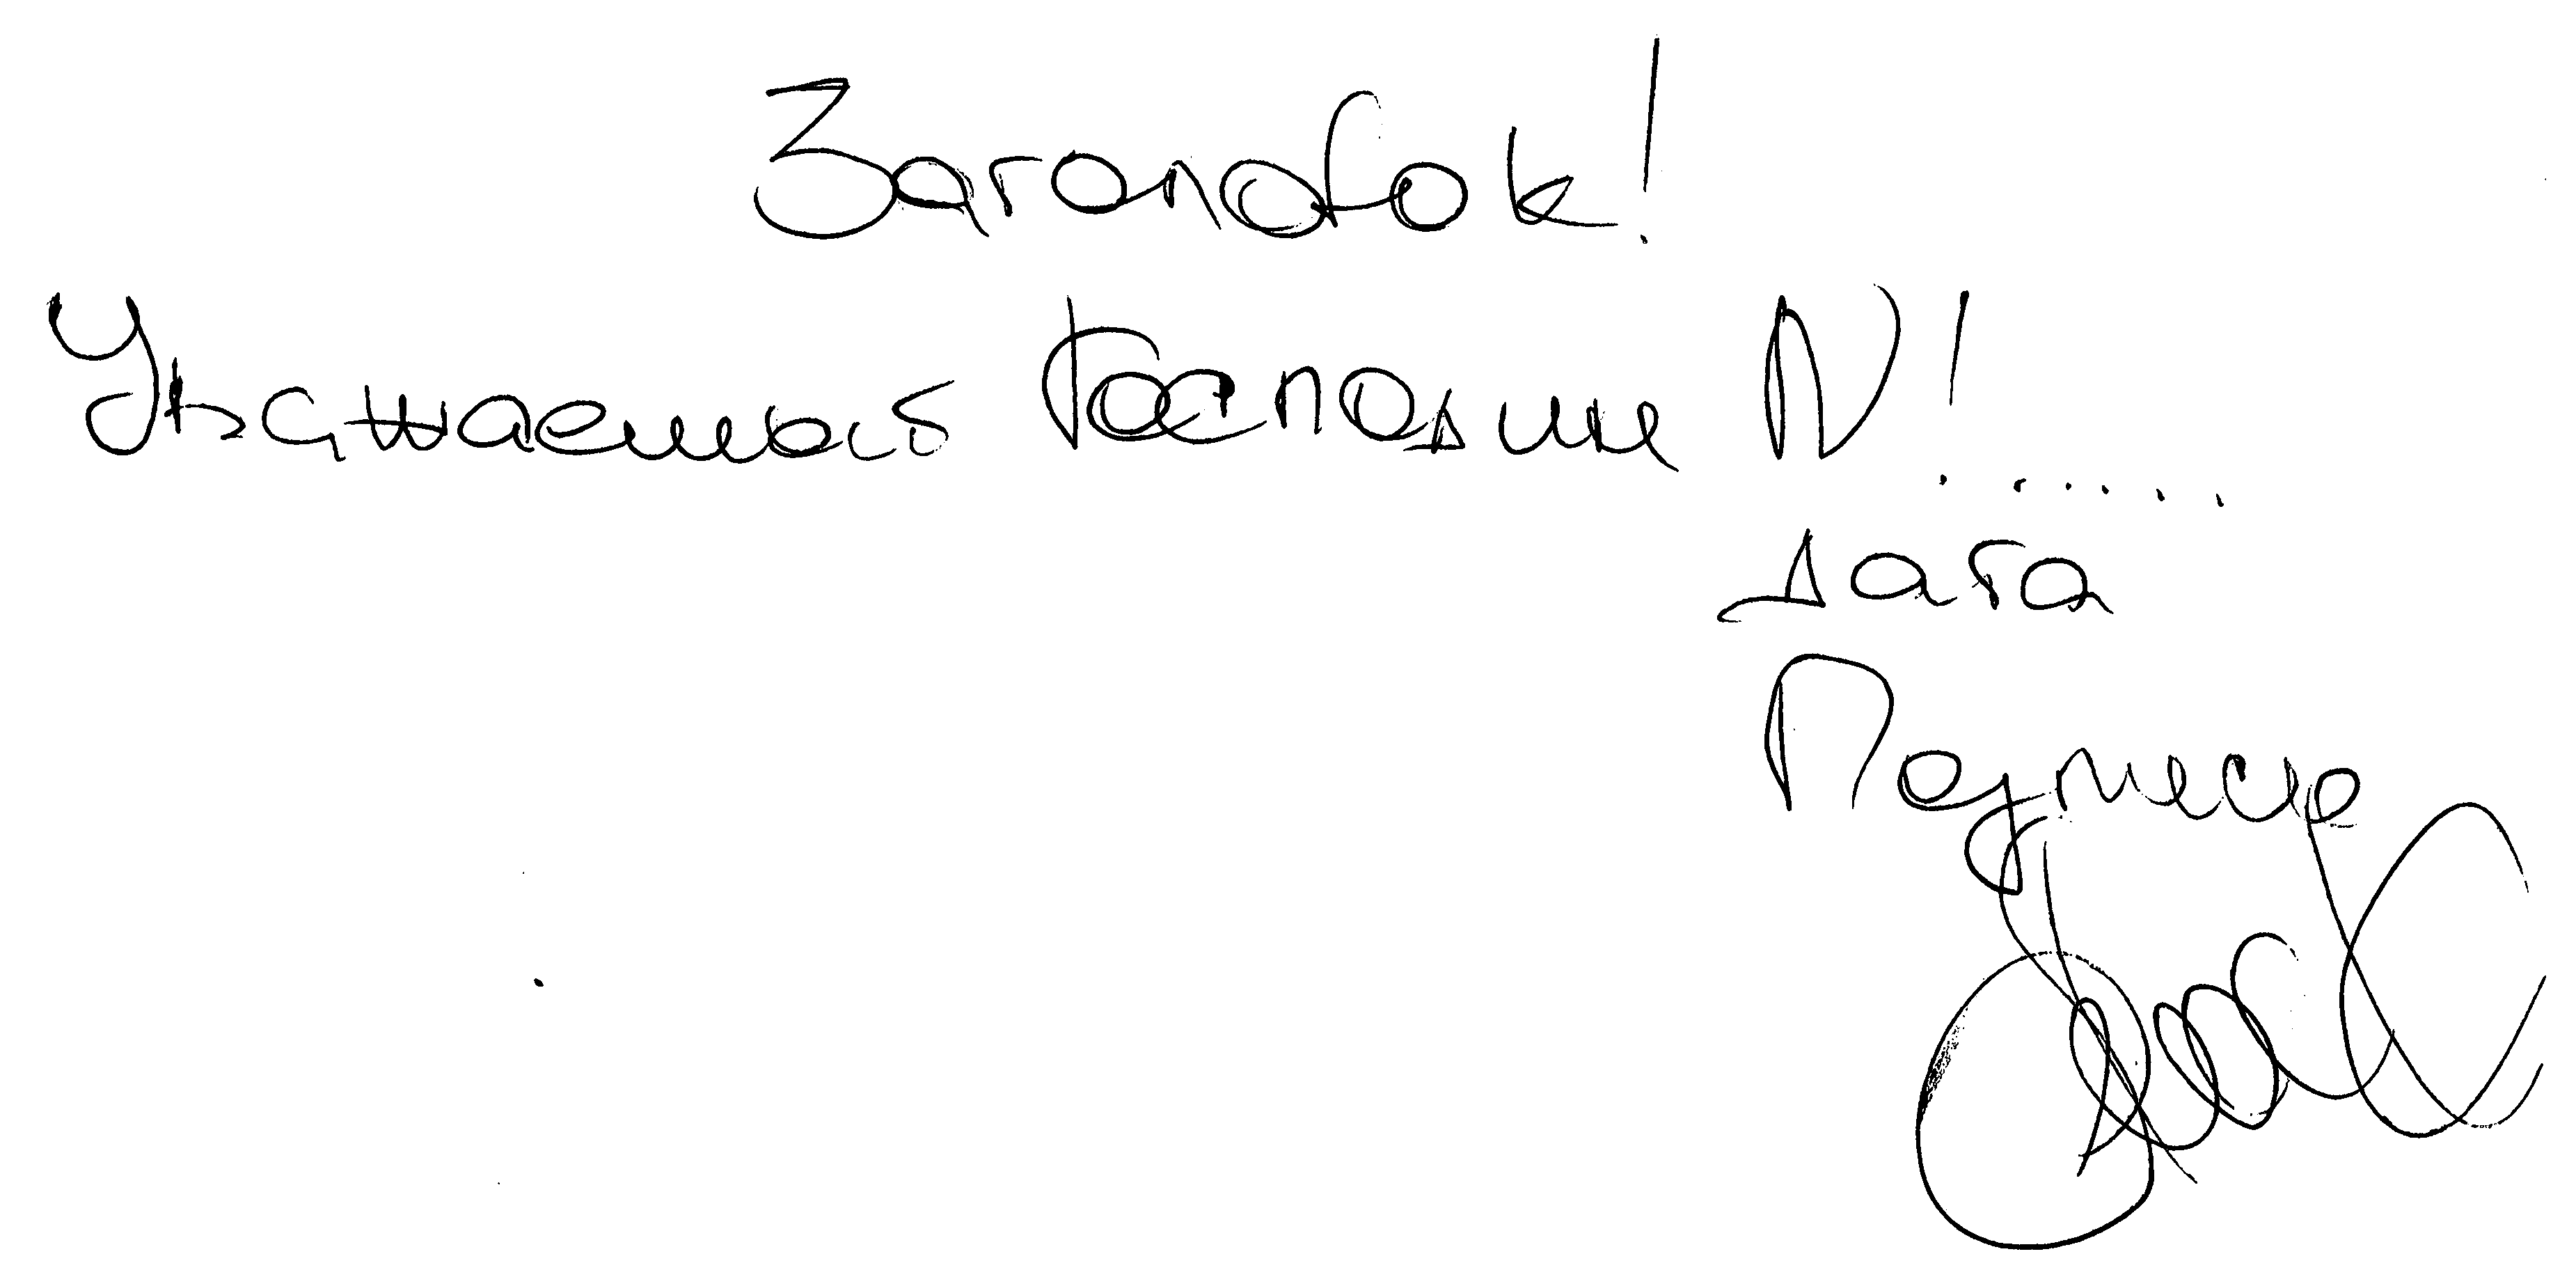 Заголовок!
Уважаемый Господин N!......
дата
Подпись